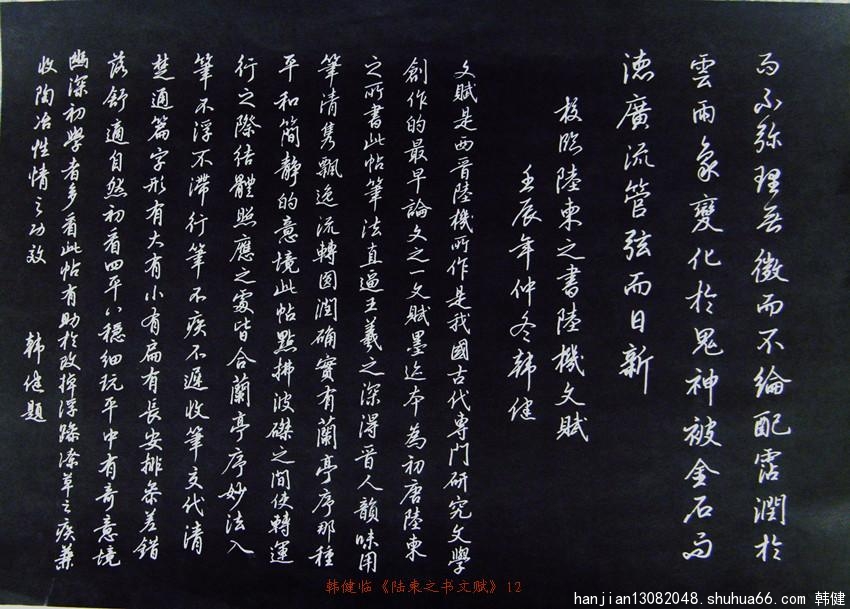 而不弥理無微而不綸配霑潤於
雲雨象變化於鬼神被金石而
德廣流管弦而日新
校臨陸柬之書陸機文賦
壬辰年仲冬韩健
文賦是西晉陸機所作是我國古代專門研究文學
創作的最早論文之一文賦墨迄本為初唐陸柬
之所書此帖筆法直逼王羲之深得晉人韻味用
筆清隽飄逸流轉圆润确實有蘭亭序那種
平和簡静的意境此帖點拂波磔之间使轉運
行之際结體照應之處皆合蘭亭序妙法入
筆不浮不滞行筆不疾不遲收筆交代清
楚通篇字形有大有小有扁有長安排參差錯
落舒適自然初看四平八穩细玩平中有奇意境
幽深初學者多看此帖有助於改掉浮躁潦草之疾兼
收陶冶性情之功效
韩健題
韩健临《陆柬之书文赋》12
hanjian13082048.shuhua66.com 韩健